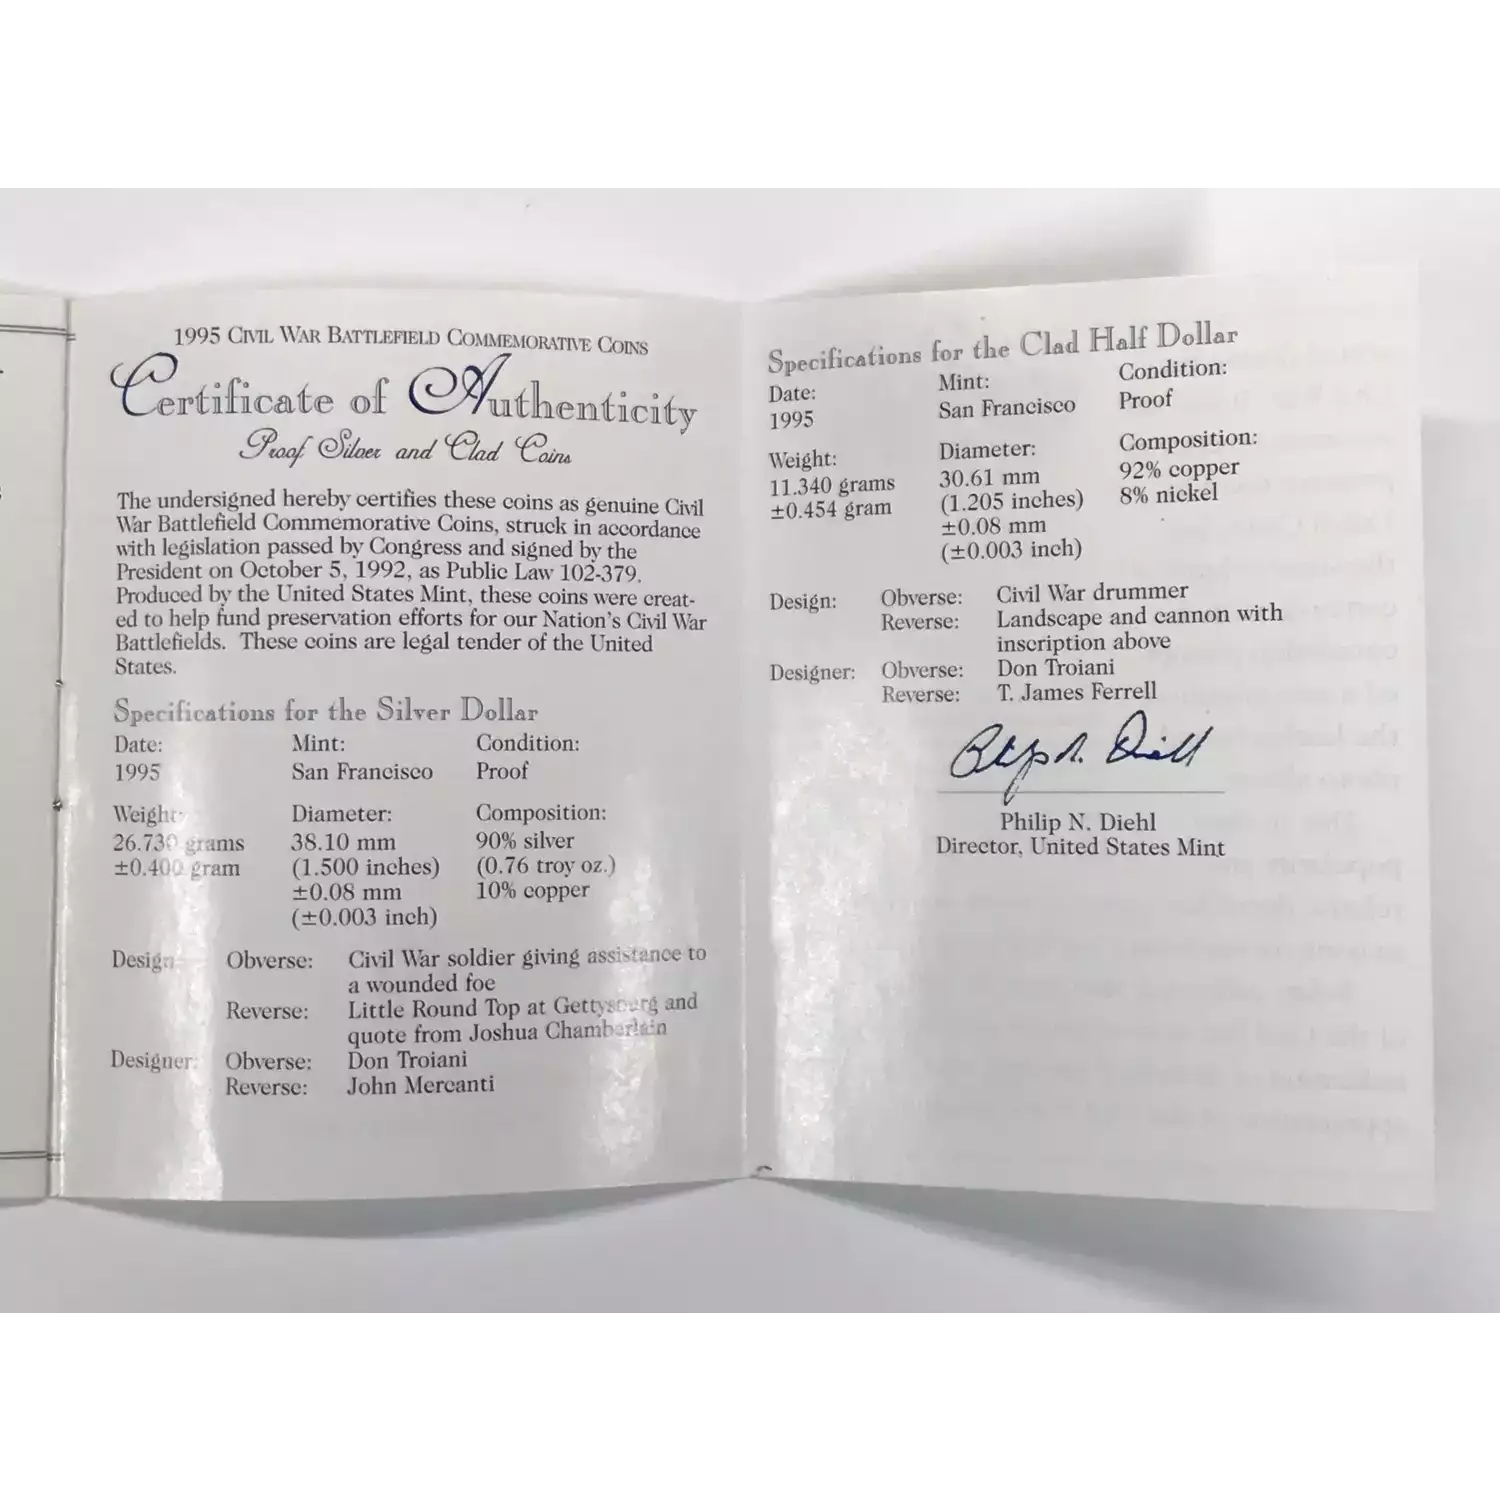 1995 Civil War Battlefield Commemorative Coins
Certificate of Authenticity
Proof Silver and Clad Coins
The undersigned hereby certifies these coins as genuine Civil
War Battlefield Commemorative Coins, struck in accordance
with legislation passed by Congress and signed by the
President on October 5, 1992, as Public Law 102-379.
Produced by the United States Mint, these coins were creat-
ed to help fund preservation efforts for our Nation's Civil War
Battlefields. These coins are legal tender of the United
States.
Specifications for the Silver Dollar
Date: Mint: Condition:
1995 San Francisco Proof
Weight: Diameter: Composition:
26.730 grams 38.10 mm 90% silver
±0.400 gram (1.500 inches) (0.76 troy oz.)
±0.08 mm 10% copper
(±0.003 inch)
Design: Obverse: Civil War soldier giving assistance to
a wounded foe
Reverse: Little Round Top at Gettysburg and
quote from Joshua Chamberlain
Designer: Obverse: Don Troiani
Reverse: John Mercanti
Specifications for the Clad Half Dollar
Date: Mint: Condition:
1995 San Francisco Proof
Weight: Diameter: Composition:
11.340 grams 30.61 mm 92% copper
±0.454 gram (1.205 inches) 8% nickel
±0.08 mm
(±0.003 inch)
Design: Obverse: Civil War drummer
Reverse: Landscape and cannon with
inscription above
Designer: Obverse: Don Troiani
Reverse: T. James Ferrell
Philip N. Diehl
Philip N. Diehl
Director, United States Mint